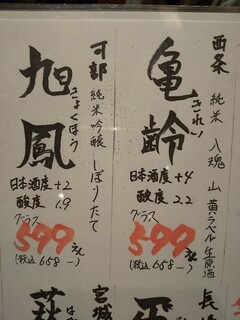 西条 純米 八魂 山 黄ラベル 生原酒
亀齢
きれい
日本酒度 +4
酸度 2.2
グラス
599えん
(税込 658-)
可部 純米吟醸 しぼりたて
旭鳳
きょくほう
日本酒度 +2
酸度 1.9
グラス
599えん
(税込 658-)
宮城
萩